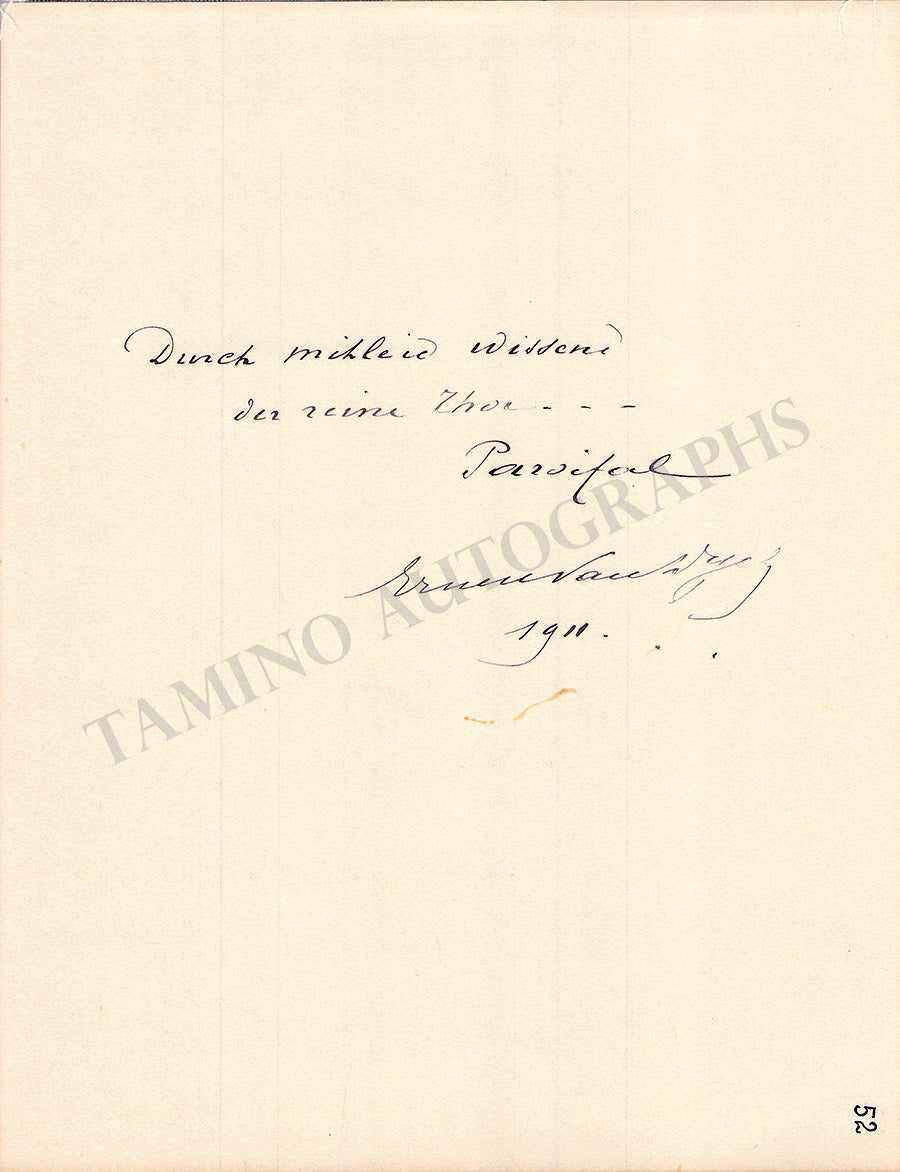 Durch mitleid wissend
der reine Thor - - -
Parsifal
Ernest Van Dyck
1911.
TAMINO AUTOGRAPHS
52